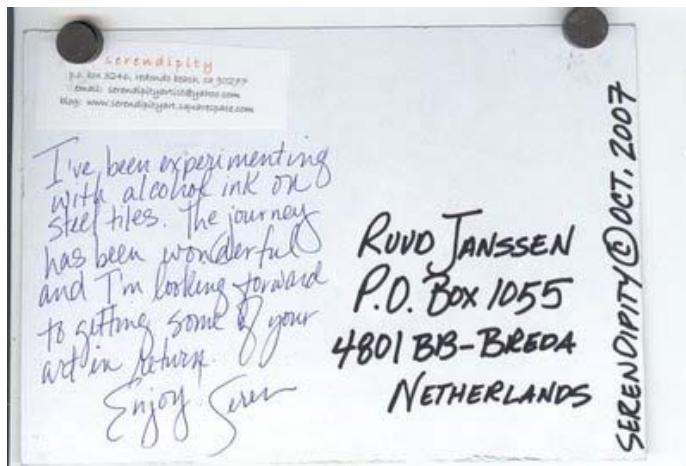 serendipity
p.o. box 3246, redondo beach, ca 90277
email: serendipityartist@yahoo.com
blog: www.serendipityart.squarespace.com
I've been experimenting
with alcohol ink on
steel tiles. The journey
has been wonderful
and I'm looking forward
to getting some of your
art in return.
Enjoy. Seren
RUUD JANSSEN
P.O. BOX 1055
4801 BB-BREDA
NETHERLANDS
SERENDIPITY © OCT, 2007